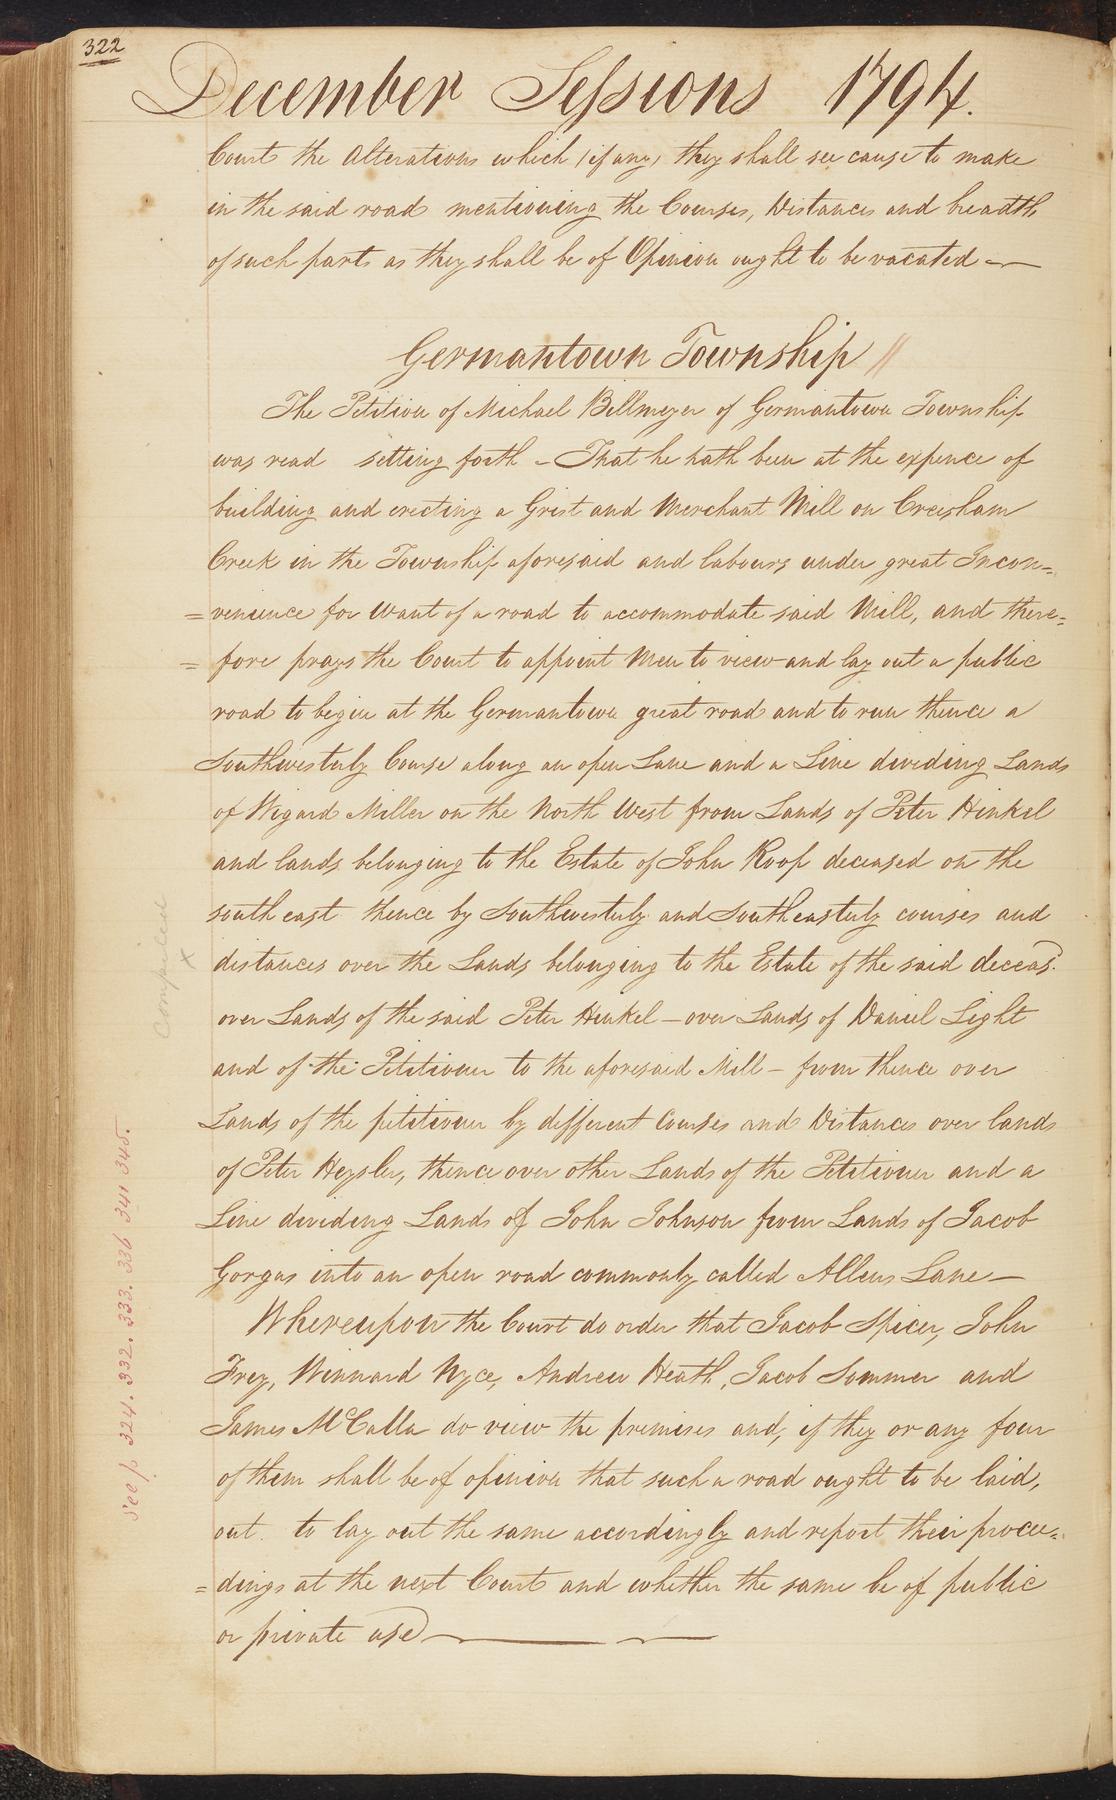 322
December Sessions 1794.
Court the Alterations which (if any) they shall see cause to make
in the said road mentioning the Courses, Distances and breadth
of such parts as they shall be of Opinion ought to be vacated —
Germantown Township //
The Petition of Michael Billmeyer of Germantown Township
was read setting forth - That he hath been at the expence of
building and erecting a Grist and Merchant Mill on Creesham
Creek in the Township aforesaid and labours under great Incon=
= venience for Want of a road to accommodate said Mill, and there=
= fore prays the Court to appoint Men to view and lay out a public
road to begin at the Germantown great road and to run thence a
Southwesterly Course along an open Lane and a Line dividing Lands
of Wigard Miller on the North West from Lands of Peter Hinkel
and lands belonging to the Estate of John Roop deceased on the
south east thence by Southwesterly and Southeasterly courses and
distances over the Lands belonging to the Estate of the said deceasd.
over Lands of the said Peter Henkel — over Lands of Daniel Light
and of the Petitioner to the aforesaid Mill — from thence over
Lands of the petitioner by different Courses and Distances over lands
of Peter Heysler, thence over other Lands of the Petitioner and a
Line dividing Lands of John Johnson from Lands of Jacob
Gorgas into an open road commonly called Allens Lane —
Whereupon the Court do order that Jacob Spicer, John
Frey, Winnard Nyce, Andrew Heath, Jacob Sommer and
James McCalla do view the premises and, if they or any four
of them shall be of opinion that such a road ought to be laid,
out to lay out the same accordingly and report their procee=
= dings at the next Court and whether the same be of public
or private use —
Compiled
x
See p 324. 332. 333. 336 341 345.